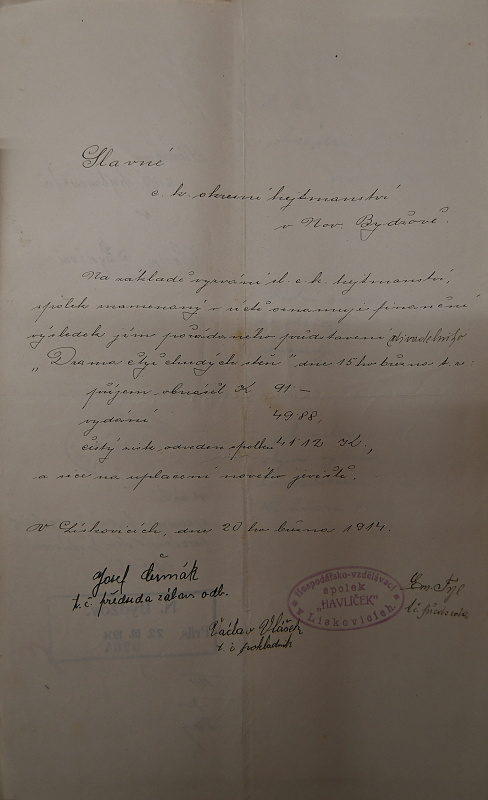 Slavné
c. k. okresní hejtmanství
v Nov. Bydžově.
Na základě vyzvání sl. c. k. hejtmanství,
spolek znamenaný v úctě oznamuje finanční
výsledek jím pořádaného představení divadelního
„Drama čtyř chudých stěn" dne 15ho března t. r.
příjem obnášel K 91 –
vydání 49 88,
čistý zisk odveden spolku 41 12 K.,
a sice na uplacení nového jeviště.
V Lískovicích, dne 20 ho března 1914.
Josef Čermák
t. č. předseda zábav. odb.
Václav Vlášek
t. č. pokladník
Hospodářsko-vzdělávací
spolek
"HAVLÍČEK"
v Lískovicích
t. č. předseda